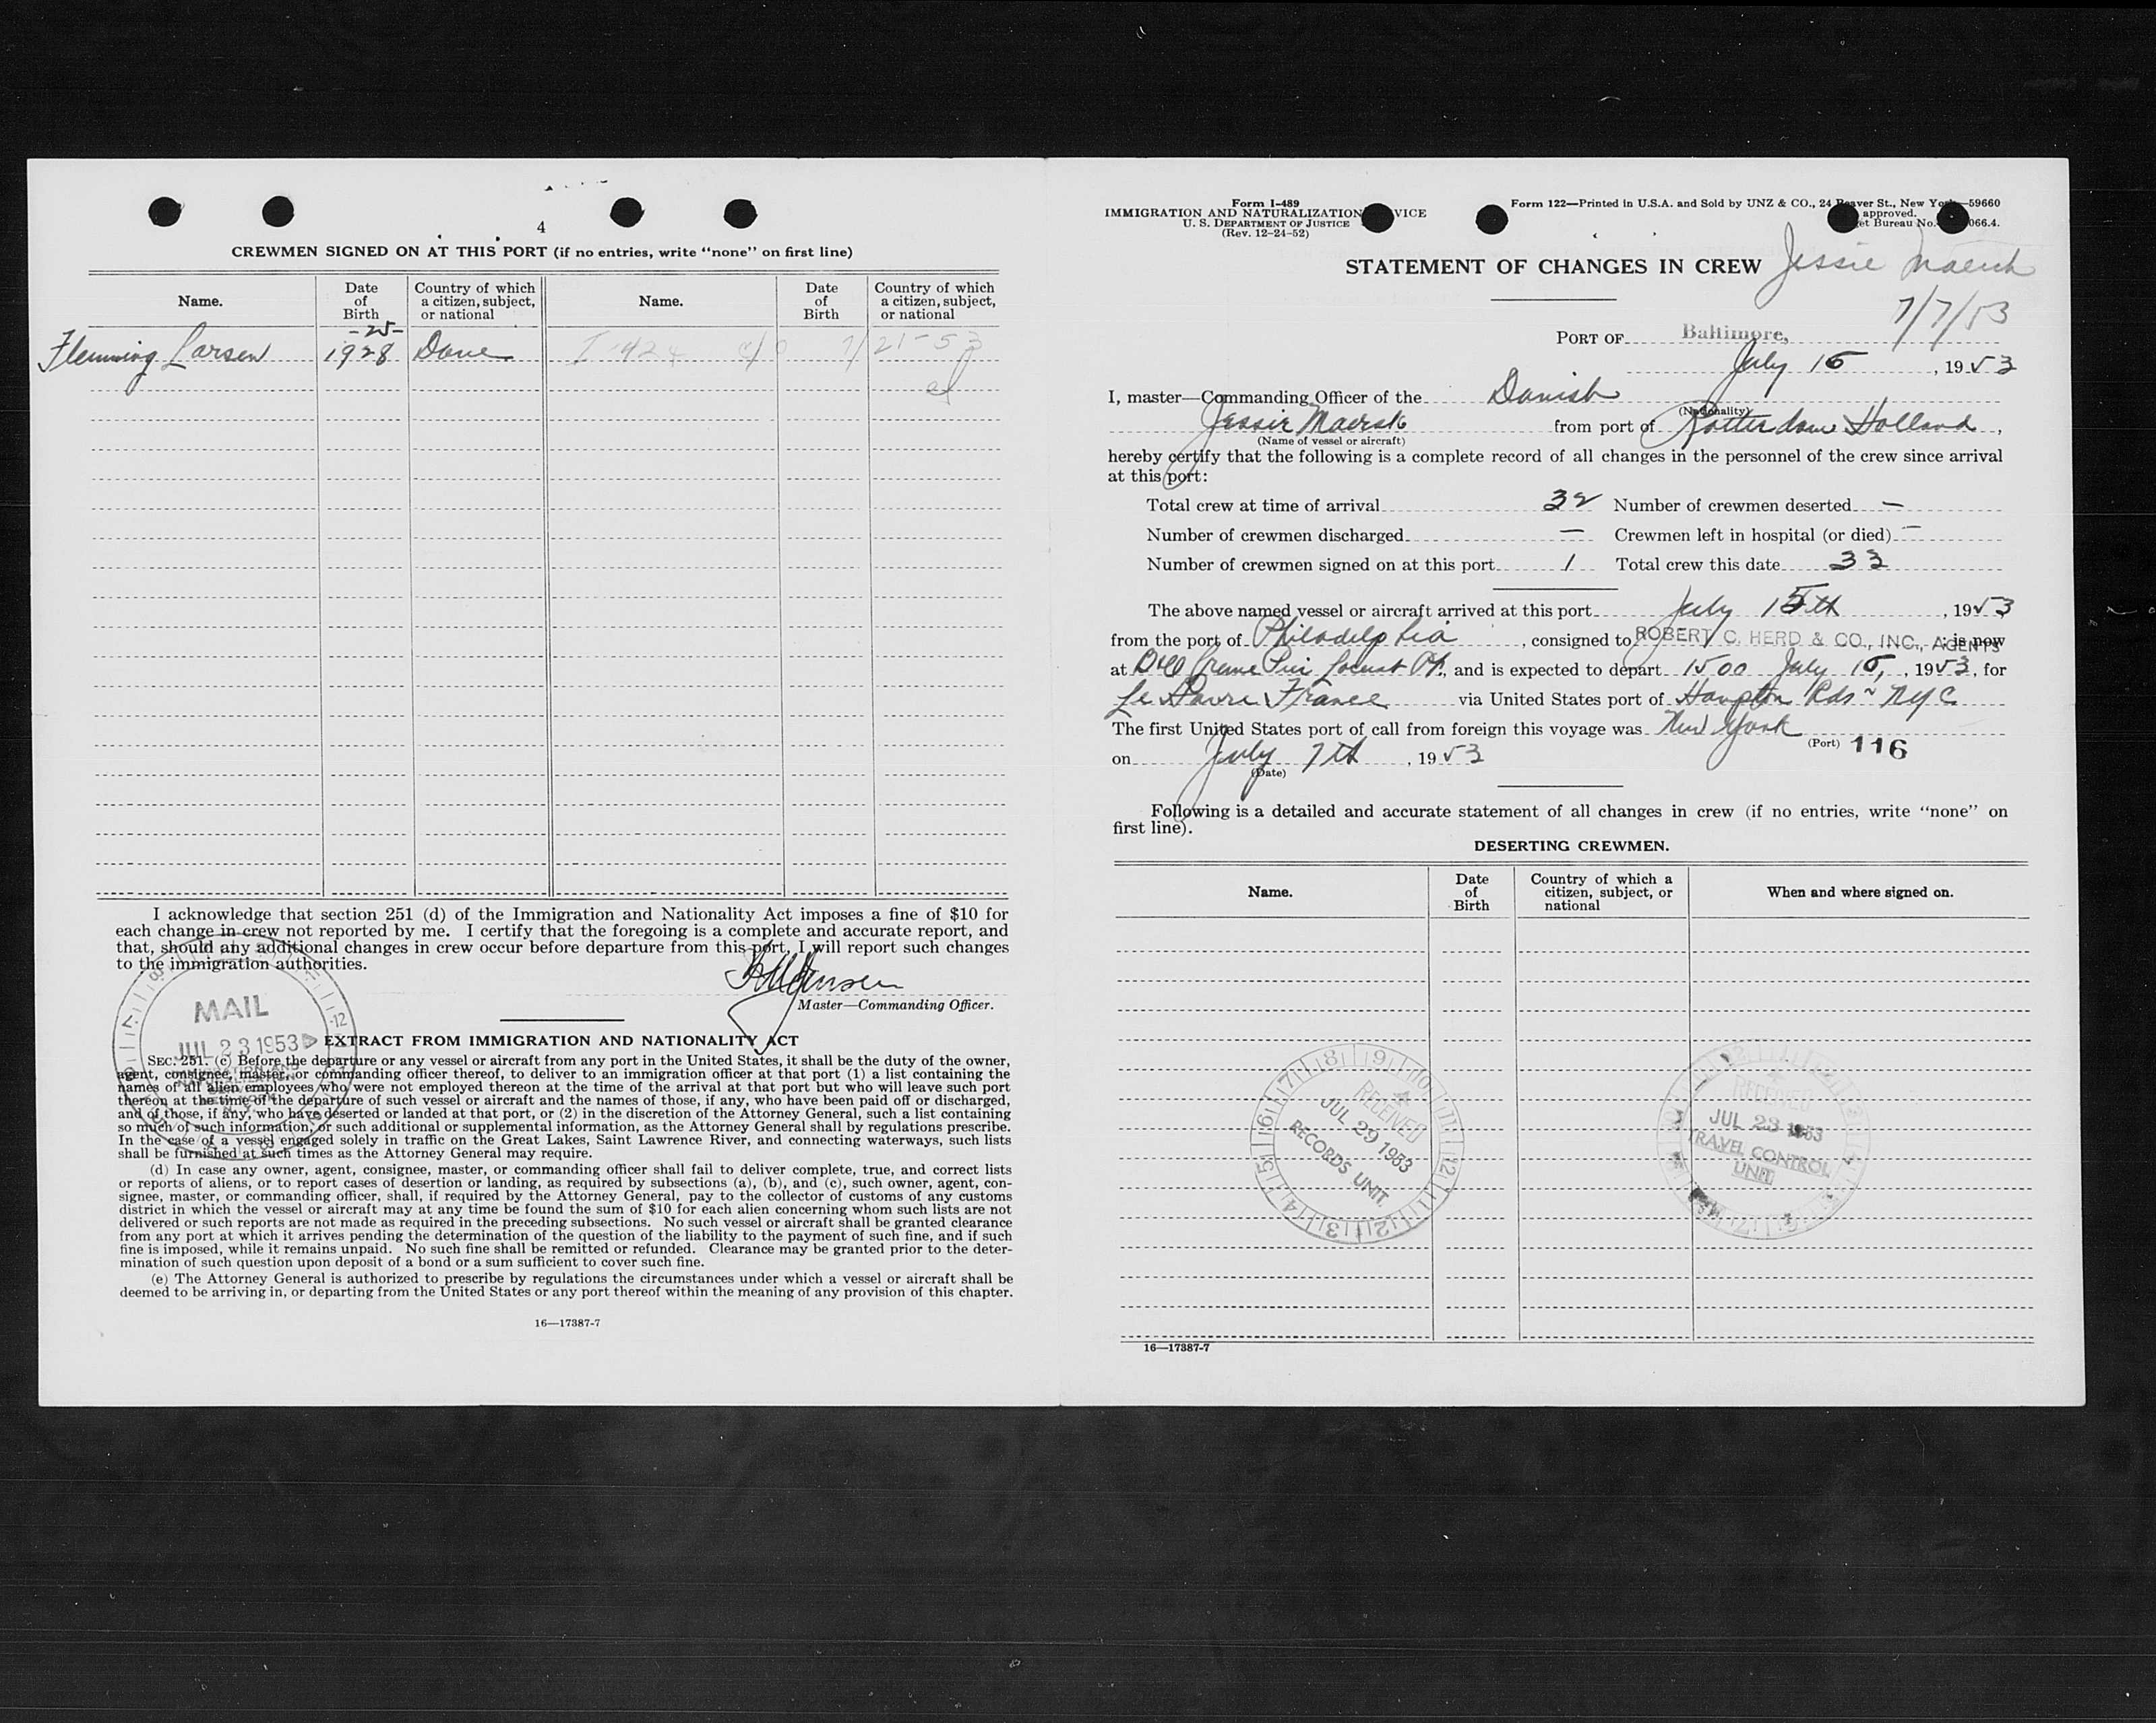 4
CREWMEN SIGNED ON AT THIS PORT (if no entries, write "none" on first line)
Name. Date of Birth Country of which a citizen, subject, or national Name. Date of Birth Country of which a citizen, subject, or national
-25-
Flemming Larsen 1928 Dane 7/21-53
I acknowledge that section 251 (d) of the Immigration and Nationality Act imposes a fine of $10 for
each change in crew not reported by me. I certify that the foregoing is a complete and accurate report, and
that, should any additional changes in crew occur before departure from this port, I will report such changes
to the immigration authorities.
Master—Commanding Officer.
MAIL
JUL 23 1953
EXTRACT FROM IMMIGRATION AND NATIONALITY ACT
SEC. 251. (c) Before the departure or any vessel or aircraft from any port in the United States, it shall be the duty of the owner,
agent, consignee, master, or commanding officer thereof, to deliver to an immigration officer at that port (1) a list containing the
names of all alien employees who were not employed thereon at the time of the arrival at that port but who will leave such port
thereon at the time of the departure of such vessel or aircraft and the names of those, if any, who have been paid off or discharged,
and of those, if any, who have deserted or landed at that port, or (2) in the discretion of the Attorney General, such a list containing
so much of such information, or such additional or supplemental information, as the Attorney General shall by regulations prescribe.
In the case of a vessel engaged solely in traffic on the Great Lakes, Saint Lawrence River, and connecting waterways, such lists
shall be furnished at such times as the Attorney General may require.
(d) In case any owner, agent, consignee, master, or commanding officer shall fail to deliver complete, true, and correct lists
or reports of aliens, or to report cases of desertion or landing, as required by subsections (a), (b), and (c), such owner, agent, con-
signee, master, or commanding officer, shall, if required by the Attorney General, pay to the collector of customs of any customs
district in which the vessel or aircraft may at any time be found the sum of $10 for each alien concerning whom such lists are not
delivered or such reports are not made as required in the preceding subsections. No such vessel or aircraft shall be granted clearance
from any port at which it arrives pending the determination of the question of the liability to the payment of such fine, and if such
fine is imposed, while it remains unpaid. No such fine shall be remitted or refunded. Clearance may be granted prior to the deter-
mination of such question upon deposit of a bond or a sum sufficient to cover such fine.
(e) The Attorney General is authorized to prescribe by regulations the circumstances under which a vessel or aircraft shall be
deemed to be arriving in, or departing from the United States or any port thereof within the meaning of any provision of this chapter.
16—17387-7
Form I-489
IMMIGRATION AND NATURALIZATION VICE
U. S. DEPARTMENT OF JUSTICE
(Rev. 12-24-52)
Form 122—Printed in U.S.A. and Sold by UNZ & CO., 24 Beaver St., New York 59660
approved.
et Bureau No. 066.4.
STATEMENT OF CHANGES IN CREW Jessie Maersk
7/7/53
PORT OF Baltimore,
July 16, 1953
I, master—Commanding Officer of the Danish
(Nationality)
Jessie Maersk from port of Rotterdam Holland,
(Name of vessel or aircraft)
hereby certify that the following is a complete record of all changes in the personnel of the crew since arrival
at this port:
Total crew at time of arrival 32 Number of crewmen deserted —
Number of crewmen discharged — Crewmen left in hospital (or died) —
Number of crewmen signed on at this port 1 Total crew this date 33
The above named vessel or aircraft arrived at this port July 15th, 1953
from the port of Philadelphia, consigned to ROBERT C. HERD & CO., INC., AGENTS; is now
at Pier Locust Pt., and is expected to depart 1500 July 16, 1953, for
Le Havre France via United States port of Hampton Rds ~ NYC
The first United States port of call from foreign this voyage was New York
(Port) 116
on July 7th, 1953
(Date)
Following is a detailed and accurate statement of all changes in crew (if no entries, write "none" on
first line).
DESERTING CREWMEN.
Name. Date of Birth Country of which a citizen, subject, or national When and where signed on.
RECEIVED
JUL 29 1953
RECORDS UNIT.
RECEIVED
JUL 23 1953
TRAVEL CONTROL
UNIT
16—17387-7